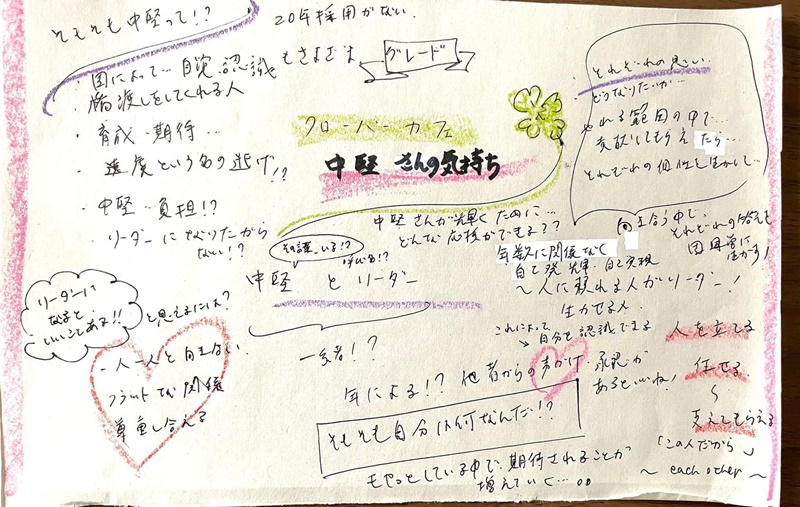 そもそも中堅って!?
20年採用がない
・園によって…自覚、認識もさまざま
グレード
・橋渡しをしてくれる人
・育成・期待…
・遠慮という名の逃げ!?
・中堅…負担!?
・リーダーになりたがらない!?
クローバーカフェ
中堅さんの気持ち
・それぞれの思い…
どうなりたいか…
やれる範囲の中で…
支えてもらえたら…
それぞれの個性を生かし…
向き合う中で、
それぞれの答えを
園運営に
生かす!
中堅さんが輝くために…
どんな応援ができる??
その課…いる!?
中堅とリーダー
年数に関係なく
自己発揮・自己実現
〜人に頼れる人がリーダー!
生かせる人
これによって
→自分を認識できる
リーダーに
なると
いいことある!!
と思えるには?
・一人一人と向き合い
フラットな関係
尊重し合える
一番!?
年による!? 他者からの声かけ・承認が
あるといいね!
人を立てる
任せる
〜
支えてもらえる
「この人だから」
〜 each other 〜
そもそも自分は何なんだ!?
もやっとしている中で、期待されることが
増えていく…。。